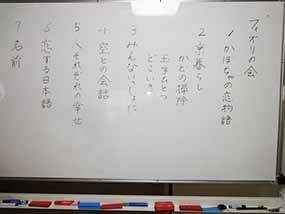 フィオリの会
1 かぼちゃの恋物語
2 京暮らし
かどの掃除
玉子ひとつ
どこいき
3 みんないっしょに
4 空との会話
5 人それぞれの幸せ
6 恋する日本語
7 名前